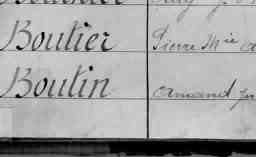 Boutier Pierre Mie
Boutin Amand